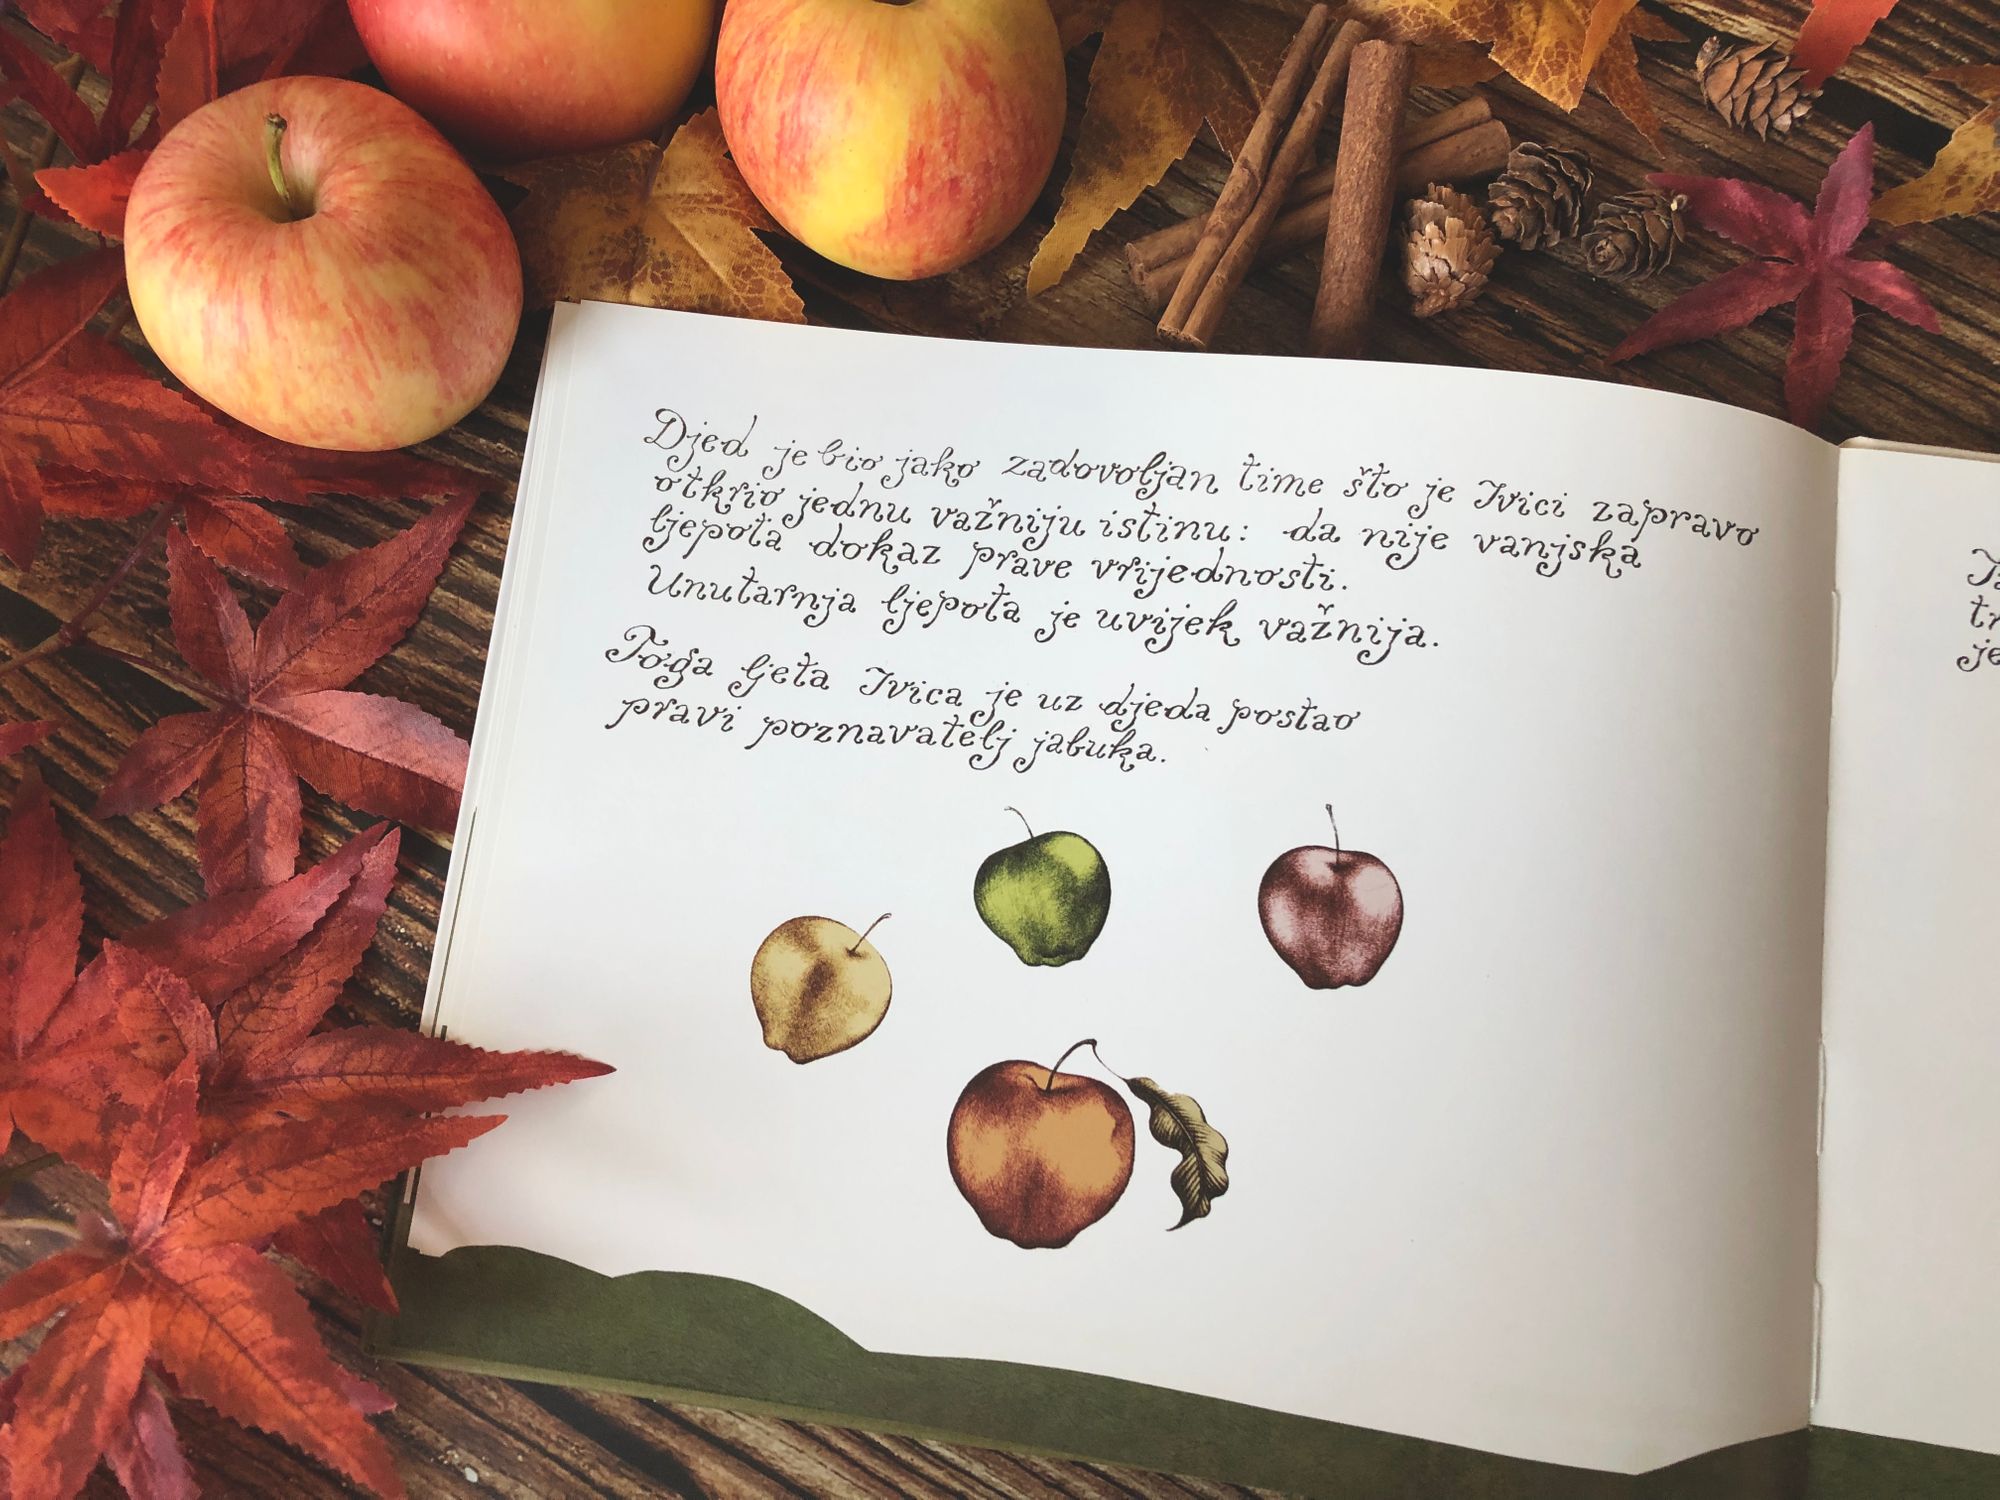 Djed je bio jako zadovoljan time što je Ivici zapravo
otkrio jednu važniju istinu: da nije vanjska
ljepota dokaz prave vrijednosti.
Unutarnja ljepota je uvijek važnija.
Toga ljeta Ivica je uz djeda postao
pravi poznavatelj jabuka.
je